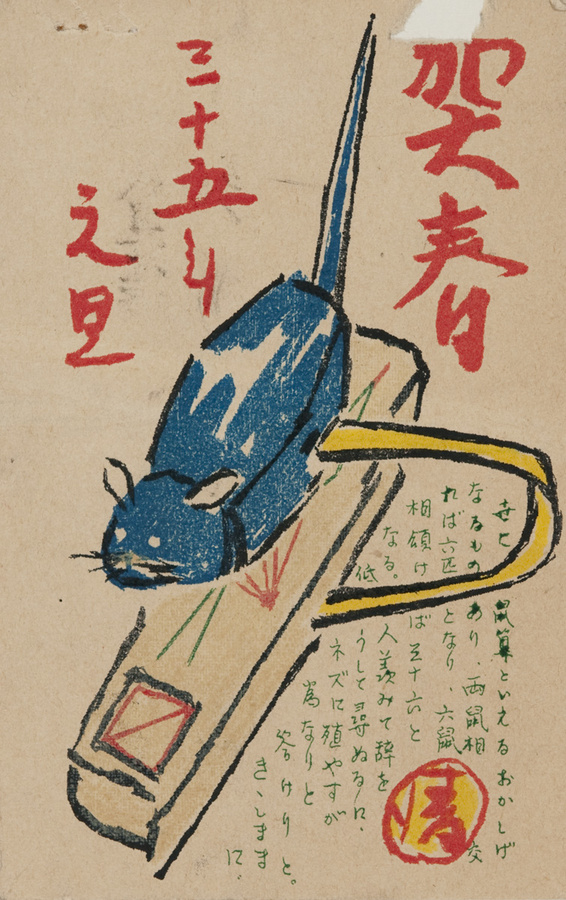 賀春
三十五年
元旦
世に鼠算といえるおかしげ
なるものあり、両鼠相交
れば六匹となり、六鼠
相傾けば三十六と
なる。人羨みて辞を
低うして尋ぬるに、
ネズに殖やすが
為なりと
答けりと。
きゝしまま
に。
清